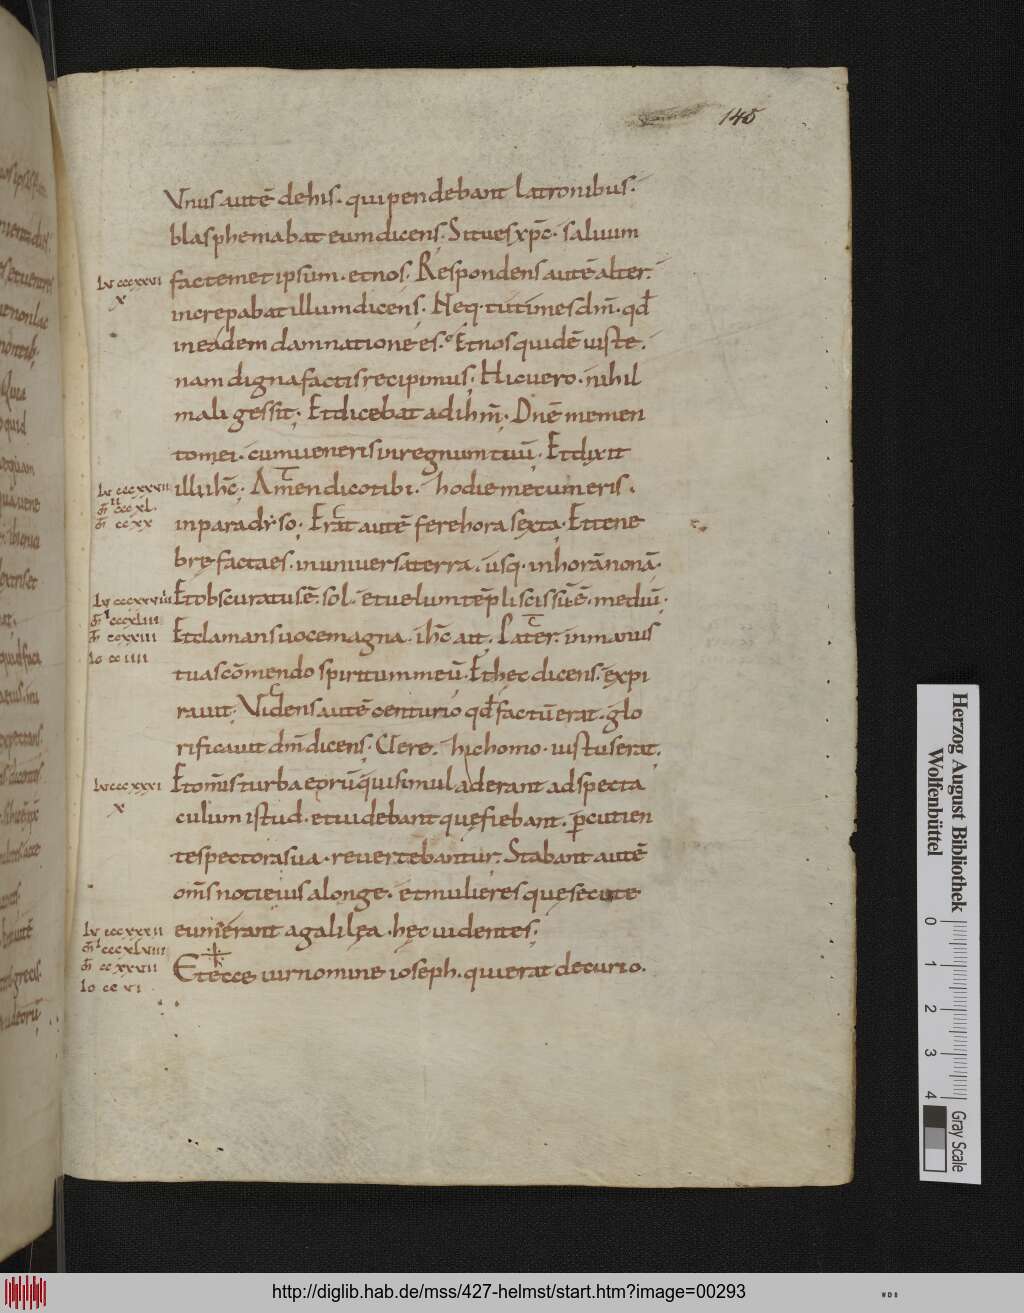 145
Vnus autē de his. qui pendebant latronibus.
blasphemabat eum dicens. Si tu es xp̄c. saluum
lv cccxxxvi fac temetipsum. et nos. Respondens autē alter.
x increpabat illum dicens. Neq. tu times dm̄. qđ
in eadem damnatione es. Et nos quidē iuste.
nam digna factis recipimus. Hic uero. nihil
mali gessit. Et dicebat ad ihm̄. Dn̄e memen
to mei. cum ueneris in regnum tuū. Et dixit
lv cccxxxii illi ih̄c. Amen dico tibi. hodie mecum eris.
m̄ cccxl.
m̄ ccxx in paradyso. Erat autē fere hora sexta. Et tene
bre factae s. in uniuersa terra. usq. in horā nonā.
lv cccxxxiii Et obscuratus ē. sol. et uelum tēpli scissū ē. mediū.
m̄ cccxliii
m̄ ccxxiii Et clamans uoce magna. ih̄c ait. Pater. in manus
io cciiii tuas cōmendo spiritum meū. Et hec dicens. expi
rauit. Videns autē centurio qđ factū erat. glo
rificauit dm̄ dicens. Uere. hic homo. iustus erat.
lv cccxxxi Et om̄is turba eorū qui simul aderant ad specta
x culum istud. et uidebant que fiebant. p̄cutien
tes pectora sua. reuertebantur. Stabant autē
om̄s noti eius a longe. et mulieres que secute
lv cccxxxii eum erant a galilea. hec uidentes.
m̄ cccxlviii
m̄ ccxxvii Et ecce uir nomine ioseph. qui erat decurio.
io ccvi
Herzog August Bibliothek
Wolfenbüttel
0 1 2 3 4
Gray Scale
http://diglib.hab.de/mss/427-helmst/start.htm?image=00293